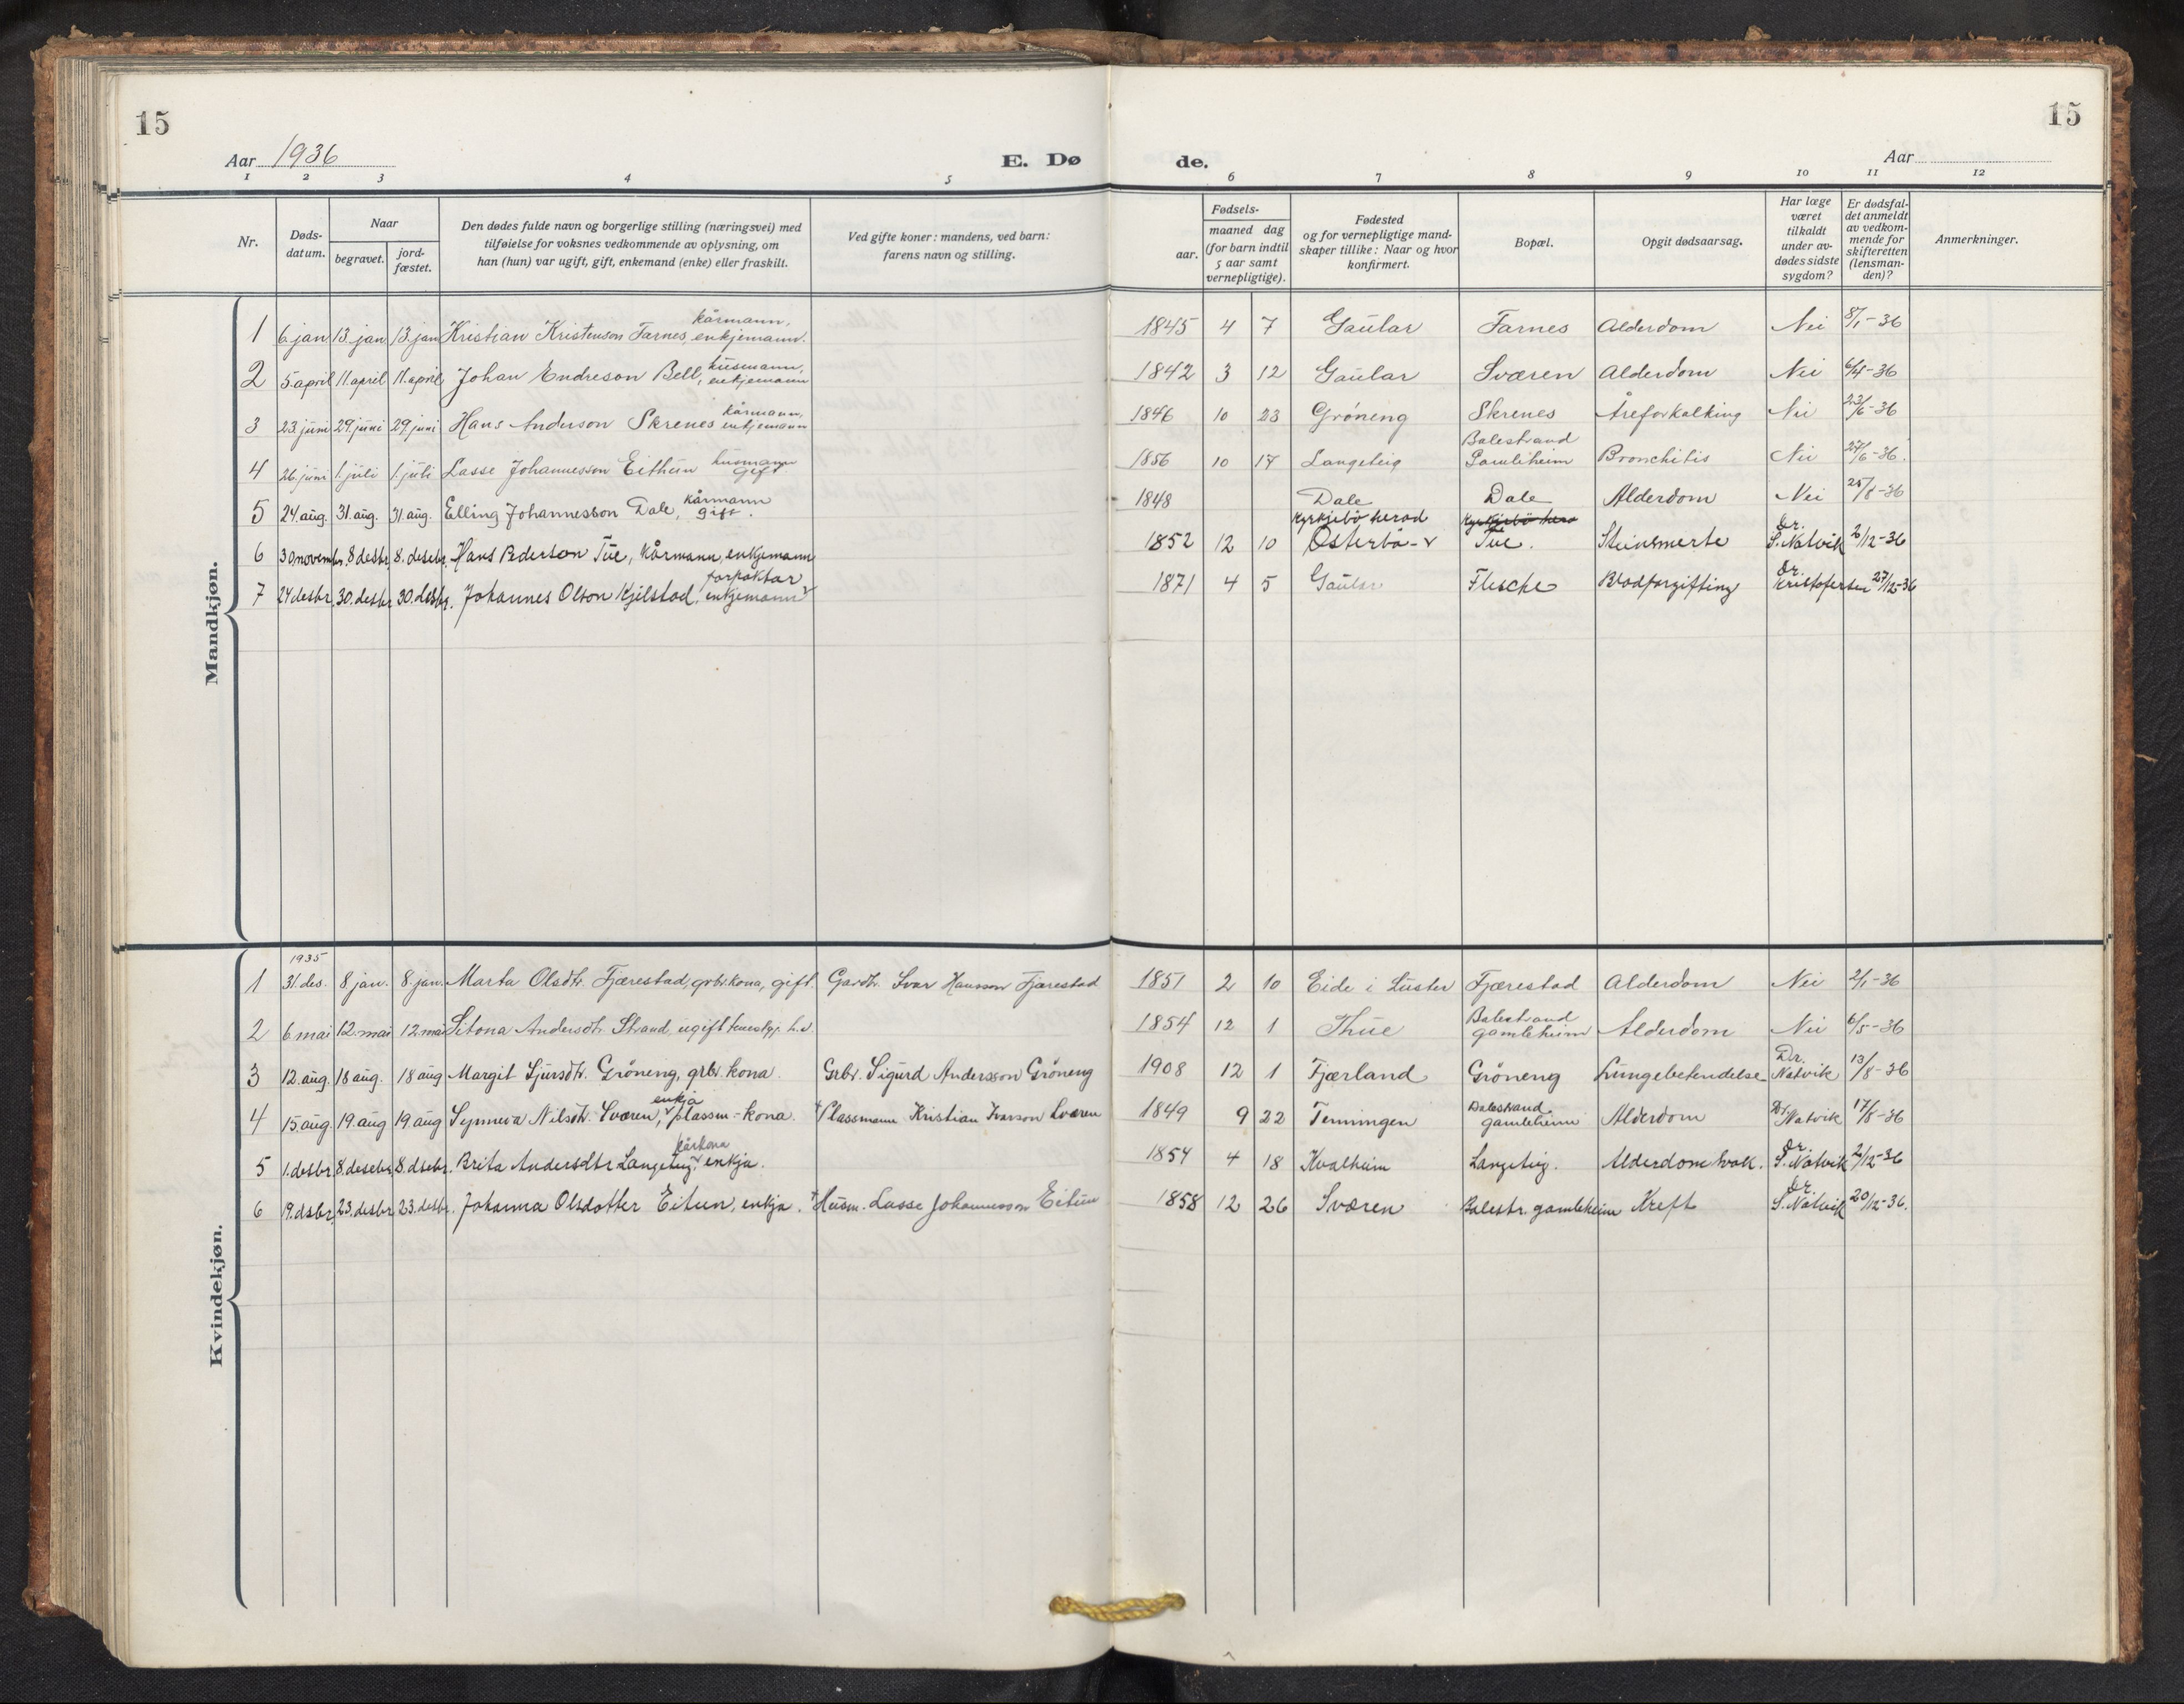 15
15
Aar 1936
E. Dø
de.
Aar
1 2 3 4 5 6 7 8 9 10 11 12
Nr.
Døds-
datum.
Naar
begravet.
jord-
fæstet.
Den dødes fulde navn og borgerlige stilling (næringsvei) med
tilføielse for voksnes vedkommende av oplysning, om
han (hun) var ugift, gift, enkemand (enke) eller fraskilt.
Ved gifte koner: mandens, ved barn:
farens navn og stilling.
Fødsels-
aar.
maaned dag
(for barn indtil
5 aar samt
vernepligtige).
Fødested
og for vernepligtige mand-
skaper tillike: Naar og hvor
konfirmert.
Bopæl.
Opgit dødsaarsag.
Har læge
været
tilkaldt
under av-
dødes sidste
sygdom?
Er dødsfal-
det anmeldt
av vedkom-
mende for
skifteretten
(lensman-
den)?
Anmerkninger.
Mandkjøn.
1 6. jan 13. jan 13. jan Kristian Kristenson Farnes, kårmann, enkjemann. 1845 4 7 Gaular Farnes Alderdom Nei 8/1-36
2 5. april 11. april 11. april Johan Endreson Bell, husmann, enkjemann 1842 3 12 Gaular Sværen Alderdom Nei 6/4-36
3 23. juni 29. juni 29. juni Hans Anderson Skrenes kårmann, enkjemann 1846 10 23 Gröneng Skrenes Åreforkalking Nei 23/6-36
4 26. juni 1. juli 1. juli Lasse Johannesson Eithun husmann gift 1856 10 17 Langeteig Balestrand Gamleheim Bronchitis Nei 27/6-36.
5 24. aug. 31. aug. 31. aug. Elling Johannesson Dale, kårmann gift. 1848 Dale Dale Alderdom Nei 25/8-36
6 30 novembr. 8 desbr 8. desebr. Hans Pederson Tue, kårmann, enkjemann 1852 12 10 Kyrkjebö herad Österbö Kyrkjebö hera Tue. Steinsmerte Dr. S. Natvik 2/12-36
7 24 desbr 30. desbr 30. desbr. Johannes Olson Kjilstad, forpaktar enkjemann 1871 4 5 Gaular Flesche Blodforgifting Dr. Kristofersen 27/12-36
Kvindekjøn.
1 1935 31. des. 8 jan. 8 jan. Marta Olsdtr. Fjærestad, grbr. kona, gift. Gardbr. Ivar Hansson Fjærestad 1851 2 10 Eide i Luster Fjærestad Alderdom Nei 2/1-36
2 6. mai 12. mai 12. mai Sitona Andersdtr. Strand, ugift 1854 12 1 Thue Balestrand gamleheim Alderdom Nei 6/5-36
3 12. aug. 18 aug. 18 aug Margit Sjursdtr. Gröneng, grbr. kona. Grbr. Sigurd Andersson Gröneng 1908 12 1 Fjærland Gröneng Lungebetendelse Dr. Natvik 13/8-36
4 15. aug. 19. aug 19. aug Synneva Nilsdtr. Sværen, enkja plassm-kona. Plassmann Kristian Ivarson Sværen 1849 9 22 Tenningen Balestrand gamleheim Alderdom Dr. Natvik 17/8-36
5 1. desbr 8. desebr 8. dsebr. Brita Andersdtr Langeteig, kårkona enkja. 1854 4 18 Kvalheim Langeteig. Alderdomsvak. Dr. S. Natvik 2/12-36
6 19. dsbr 23. desbr 23. desbr. Johanna Olsdotter Eitun, enkja. Husm. Lasse Johannesson Eitun 1858 12 26 Sværen Balestr. gamleheim Kreft Dr. S. Natvik 20/12-36.